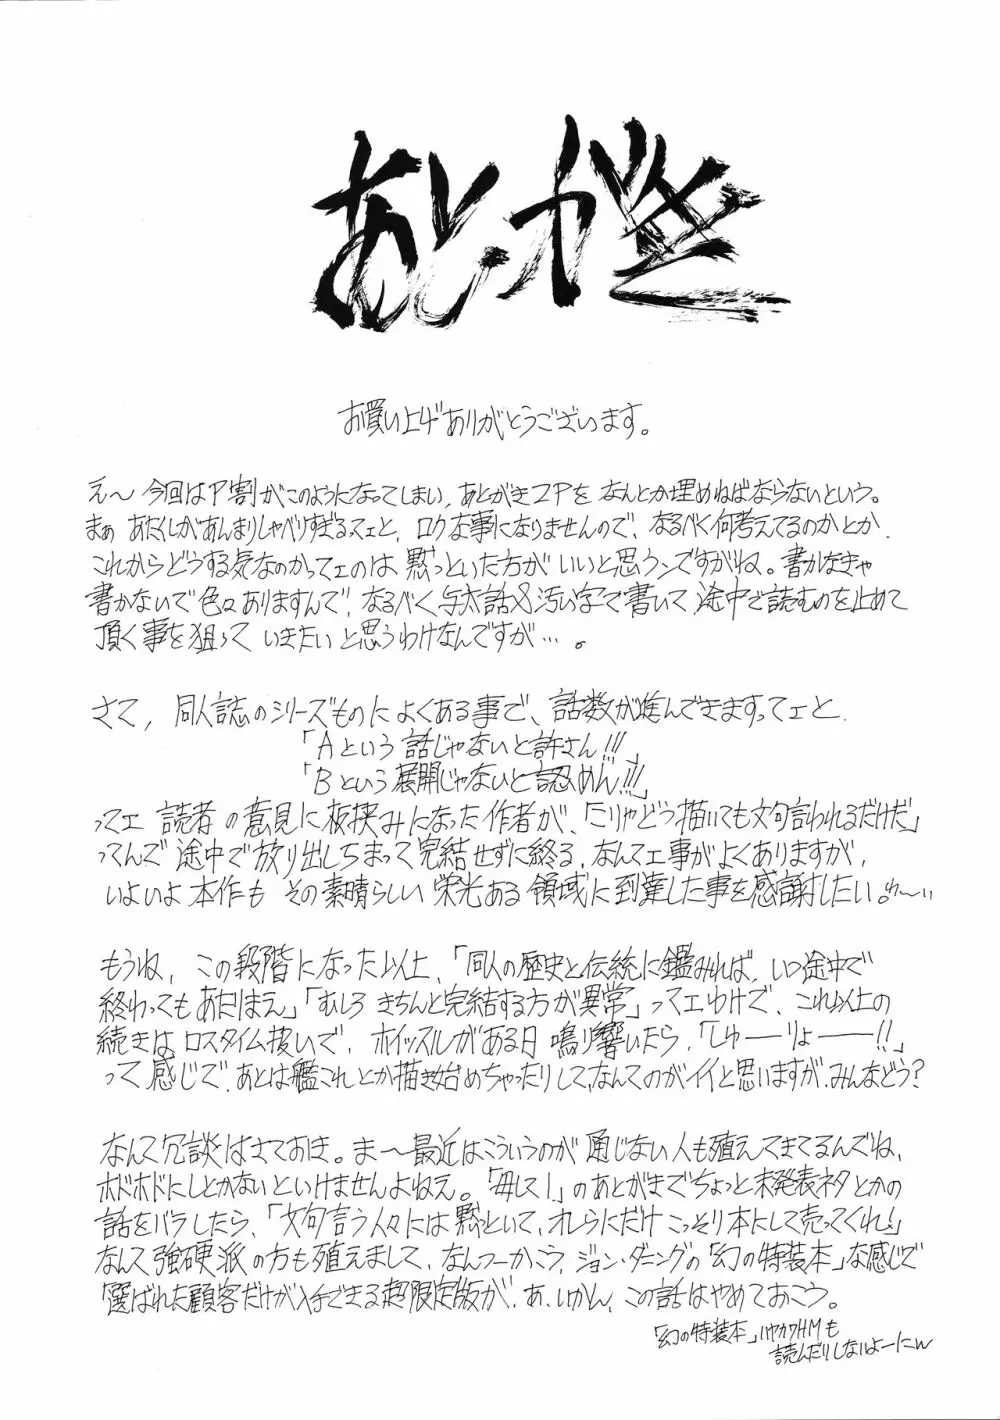 あとがき
お買い上げありがとうございます。
え〜今回はP割がこのようになってしまい、あとがき2Pをなんとか埋めねばならないという。
まぁあたくしがあんまりしゃべりすぎるってェと、ロクな事になりませんので、なるべく何考えてるのかとか
これからどうする気なのかってェのは黙っといた方がいいと思うンですがね。書かなきゃ
書かないで色々ありますんで、なるべく与太話&汚い字で書いて途中で読むのを止めて
頂く事を狙っていきたいと思うわけなんですが…。
さて、同人誌のシリーズものによくある事で、話数が進んできますってェと、
「Aという話じゃないと許さん!!!」
「Bという展開じゃないと認めん!!!」
ってェ読者の意見に板挟みになった作者が、「こりゃどう描いても文句言われるだけだ」
ってんで途中で放り出しちまって完結せずに終る、なんてェ事がよくありますが、
いよいよ本作もその素晴らしい栄光ある領域に到達した事を感謝したい。
もうね、この段階になった以上、「同人の歴史と伝統に鑑みれば、いつ途中で
終わってもあたりまえ」「むしろきちんと完結する方が異常」ってェわけで、これ以上の
続きはロスタイム扱いで、ホイッスルがある日鳴り響いたら、「しゅーりょーー!!」
って感じで、あとは艦これとか描き始めちゃったりして、なんてのがイイと思いますが、みんなどう?
なんて冗談はさておき。ま〜最近はこういうのが通じない人も殖えてきてるんでね、
ホドホドにしとかないといけませんよねえ。「毎して1」のあとがきでちょっと未発表ネタとかの
話をバラしたら、「文句言う人々には黙っといて、オレらにだけこっそり本にして売ってくれ!」
なんて強硬派の方も殖えまして、なんつーかこう、ジョン・ダニングの「幻の特装本」な感じで
「選ばれた顧客だけが入手できる超限定版が、あ、いかん、この話はやめておこう。
「幻の特装本」ハヤカワHMも
読んだりしないよーにw